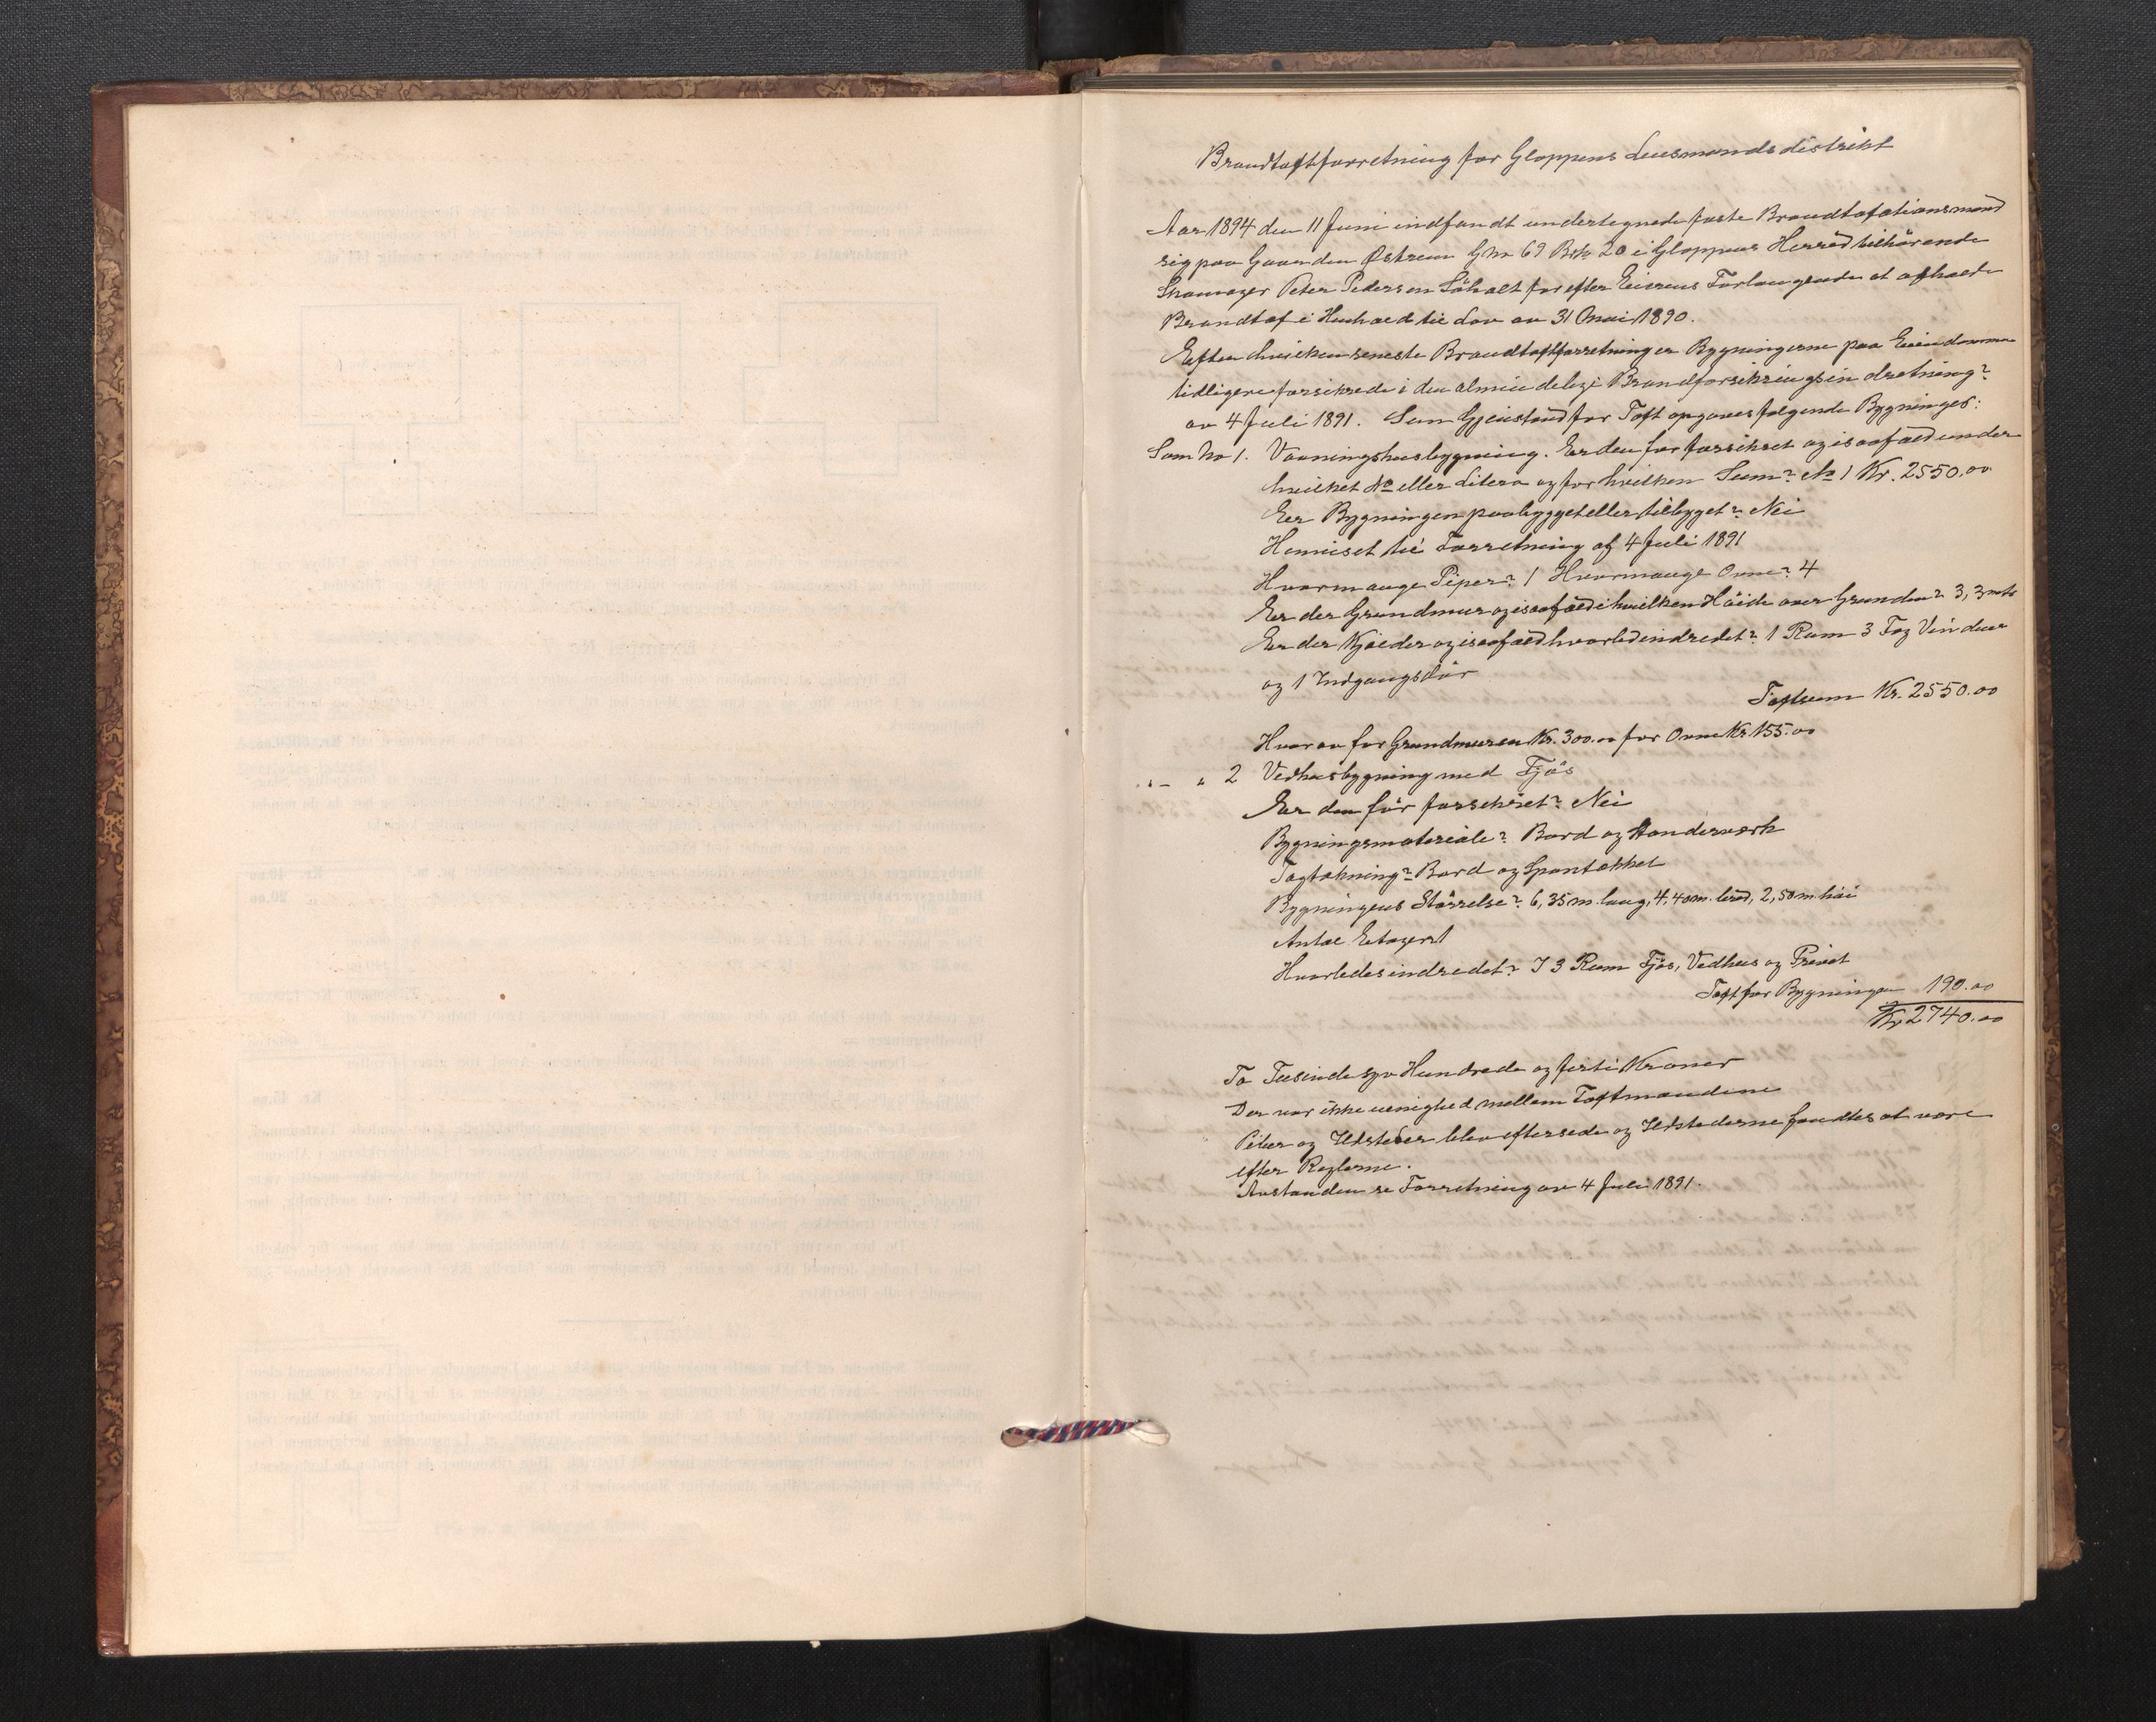 Brandtaxtforretning for Gloppens Lensmandsdistrikt
Aar 1894 den 11 Juni indfandt undertegnede faste Brandtaxationsmænd
sig paa Gaarden Østrem GNo 69 BNo 20 i Gloppens Herred tilhörende
Skomager Peter Pedersen for efter Eierens Forlangende at afholde
Brandtax i Henhold til Lov av 31 Mai 1890.
Efter hvilken seneste Brandtaxtforretning er Bygningerne paa Eiendommen
tidligere forsikrede i den almindelige Brandforsikringsindretning?
av 4 Juli 1891. Som Gjenstand for Taxt opgaves følgende Bygninger:
Som No 1. Vaaningshusbygning. Er den før forsikret og isaafald under
hvilket No eller Litera og for hvilken Sum? No 1 Kr. 2550,00
Er Bygningen paabygget eller tilbygget? Nei
Henviset til Forretning af 4 Juli 1891
Hvormange Piper? 1 Hvormange Ovne? 4
Er der Grundmur og isaafald i hvilken Høide over Grunden? 3,3 mtr
Er der Kjælder og isaafald hvorled indredet? 1 Rum 3 Fag Vinduer
og 1 Indgangsdör
Taxtsum Kr. 2550.00
Hvorav for Grundmuren Kr. 300.00 for Ovne Kr. 155.00
" — " 2 Vedhusbygning med Fjös
Er den för forsikret? Nei
Bygningsmateriale? Bord og Standerværk
Tagtækning? Bord og Spontækket
Bygningens Störrelse? 6,35 m. lang, 4,40 m. bred, 2,50 m. höi
Antal Etager 1
Hvorledes indredet? I 3 Rum Fjös, Vedhus og Privet
Taxt for Bygningen 190.00
Kr 2740.00
To Tusinde syv Hundrede og førti Kroner
Der var ikke uenighed mellem Taxtmændene
Piber og Ildsteder blev efterseede og Ildstederne fandtes at være
efter Reglerne.
Avstanden se Forretning av 4 Juli 1891.